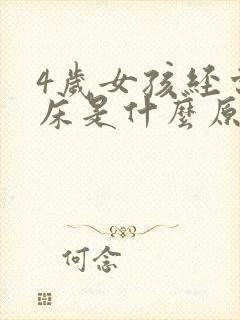 4歲女孩經
床是什麼原
何念